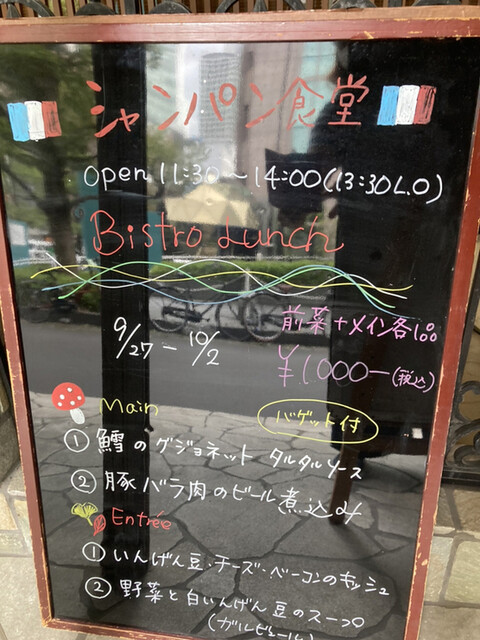 シャンパン食堂
open 11:30～14:00(13:30 L.O)
Bistro Lunch
9/27 － 10/2
前菜＋メイン各1品
¥1,000－(税込)
Main
バゲット付
① 鱈のグジョネット タルタルソース
② 豚バラ肉のビール煮込み
Entrée
① いんげん豆・チーズ・ベーコンのキッシュ
② 野菜と白いんげん豆のスープ
(ガルビュール)